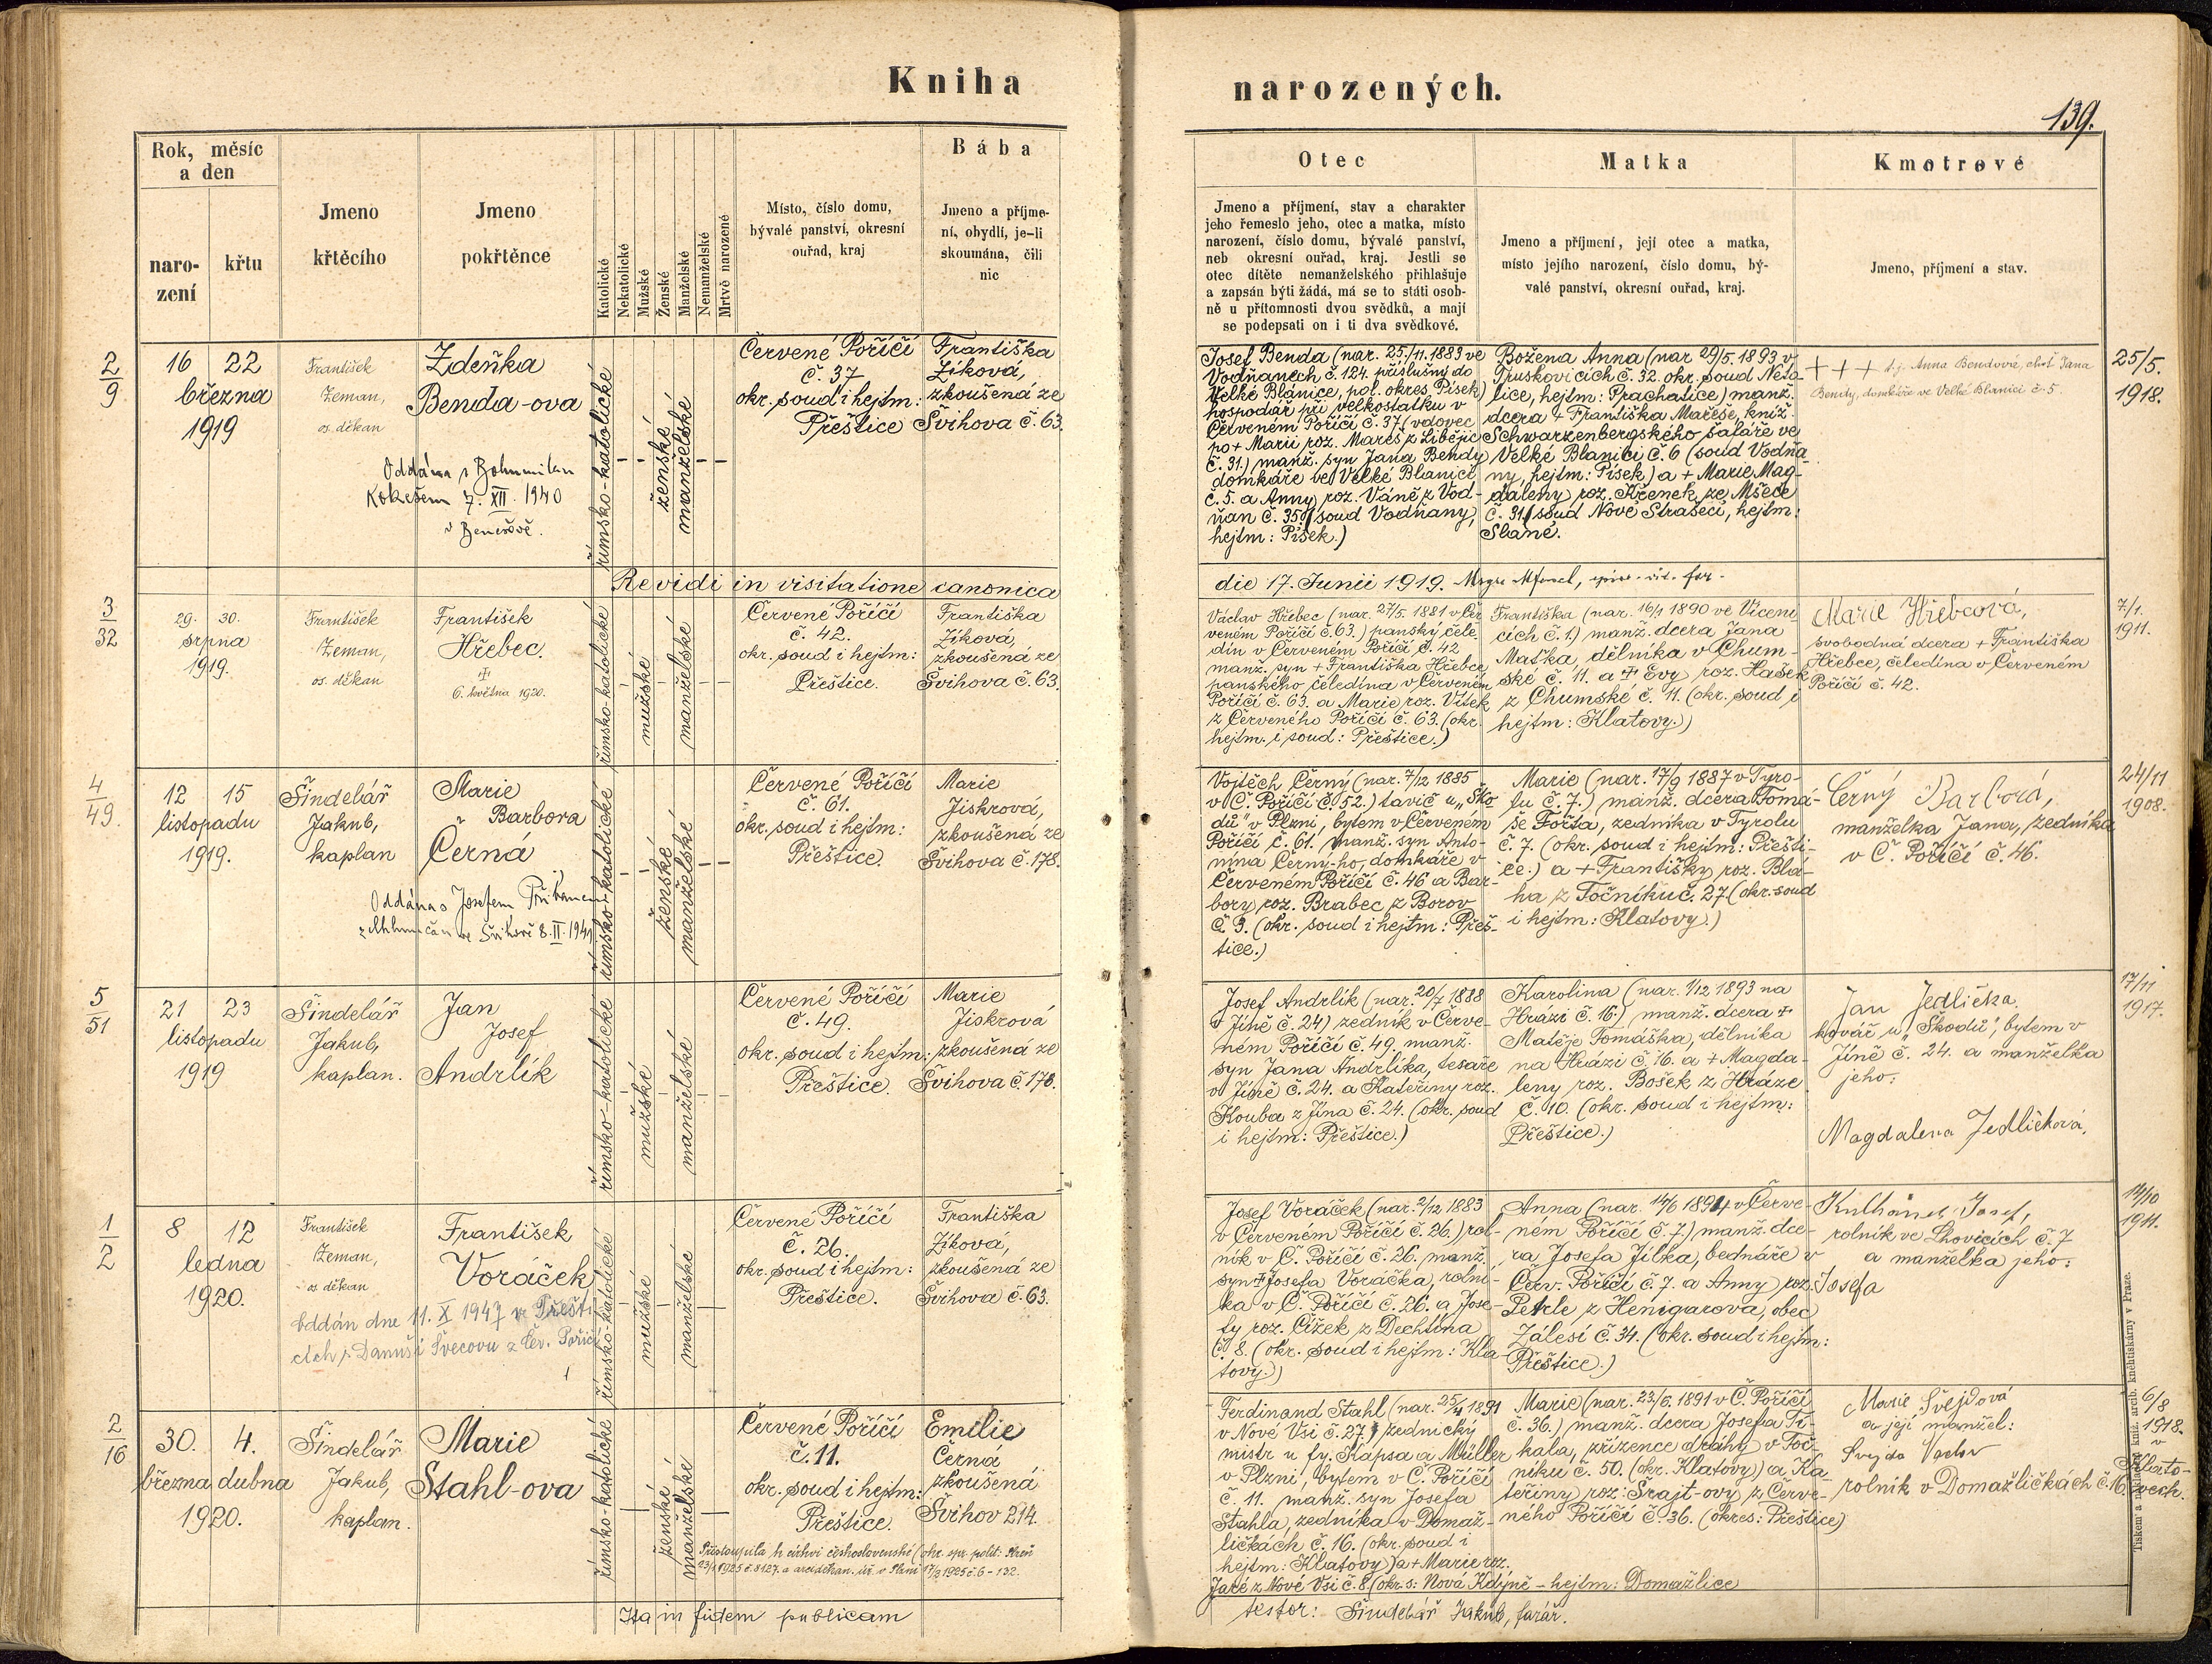 Kniha narozených.
139.
Rok, měsíc
a den
naro-
zení
křtu
Jmeno
křtěcího
Jmeno
pokřtěnce
Katolické
Nekatolické
Mužské
Ženské
Manželské
Nemanželské
Mrtvě narozené
Místo, číslo domu,
bývalé panství, okresní
ouřad, kraj
Bába
Jmeno a příjme-
ní, obydlí, je-li
skoumána, čili
nic
Otec
Jmeno a příjmení, stav a charakter
jeho řemeslo jeho, otec a matka, místo
narození, číslo domu, bývalé panství,
neb okresní ouřad, kraj. Jestli se
otec dítěte nemanželského přihlašuje
a zapsán býti žádá, má se to státi osob-
ně u přítomnosti dvou svědků, a mají
se podepsati on i ti dva svědkové.
Matka
Jmeno a příjmení, její otec a matka,
místo jejího narození, číslo domu, bý-
valé panství, okresní ouřad, kraj.
Kmotrové
Jmeno, příjmení a stav.
2
9
16 22
března
1919
František
Zeman,
os. děkan
Zdeňka
Benda-ova
Oddána s Bohumilem
Kokešem 7. XII. 1940
v Benešově.
římsko-katolické
ženské
manželské
Červené Poříčí
č. 37
okr. soud i hejtm:
Přeštice
Františka
Zíková,
zkoušená ze
Švihova č. 63.
Josef Benda (nar. 25./11. 1883 ve
Vodňanech, č. 124. příslušný do
Velké Blánice, pol. okres Písek)
hospodář při velkostatku v
Červeném Poříčí č. 37 (vdovec
po + Marii roz. Mareš z Libějic
č. 31.) manž. syn Jana Bendy
domkáře ve Velké Blanici
č. 5. a Anny roz. Váně z Vod-
ňan č. 35. (soud Vodňany,
hejtm: Písek.)
Božena Anna (nar 29/5. 1893 v
Truskovicích č. 32. okr. soud Neto-
lice, hejtm: Prachatice) manž.
dcera + Františka Mareše, kníž.
Schwarzenbergského šafáře ve
Velké Blanici č. 6 (soud Vodňa
ny, hejtm: Písek) a + Marie Mag-
daleny roz. Křenek ze Mšece
č. 31 (soud Nové Strašecí, hejtm:
Slané.
+ + + t. j. Anna Bendová, choť Jana
Bendy, domkáře ve Velké Blanici č. 5
25/5.
1918.
Revidi in visitatione canonica
die 17. Junii 1919.
3
32
29. 30.
srpna
1919.
František
Zeman,
os. děkan
František
Hřebec.
6. května 1920.
římsko-katolické
mužské
manželské
Červené Poříčí
č. 42.
okr. soud i hejtm:
Přeštice.
Františka
Zíková,
zkoušená ze
Švihova č. 63.
Václav Hřebec (nar. 27/5. 1881 v Čer
veném Poříčí č. 63.) panský čele
dín v Červeném Poříčí č. 42
manž. syn + Františka Hřebce
panského čeledína v Červeném
Poříčí č. 63. a Marie roz. Vítek
z Červeného Poříčí č. 63. (okr.
hejtm. i soud: Přeštice.)
Františka (nar. 16/1 1890 ve Víceni-
cích č. 1.) manž. dcera Jana
Maťka, dělníka v Chum-
ské č. 11. a + Evy roz. Hašek
z Chumské č. 11. (okr. soud i
hejtm: Klatovy.)
Marie Hřebcová,
svobodná dcera + Františka
Hřebce, čeledína v Červeném
Poříčí č. 42.
7/1.
1911.
4
49.
12 15
listopadu
1919.
Šindelář
Jakub,
kaplan
Marie
Barbora
Černá
Oddána s Josefem
ve Švihově 8. II. 1941
římsko-katolické
ženské
manželské
Červené Poříčí
č. 61.
okr. soud i hejtm:
Přeštice.
Marie
Jiskrová,
zkoušená ze
Švihova č. 178.
Vojtěch Černý (nar. 7/12 1885
v Č. Poříčí č. 52.) tavič u „Ško
dů" v Plzni, bytem v Červeném
Poříčí č. 61. manž. syn Anto-
nína Černý-ho, domkáře v
Červeném Poříčí č. 46 a Bar-
bory roz. Brabec z Borov
č. 3. (okr. soud i hejtm: Přeš-
tice.)
Marie (nar. 17/9 1887 v Tyro-
lu č. 7.) manž. dcera Tomá-
še Fořta, zedníka v Tyrolu
č. 7. (okr. soud i hejtm: Přešti-
ce.) a + Františky roz. Blá-
ha z Točníku č. 27 (okr. soud
i hejtm: Klatovy.)
Černý Barbora,
manželka Jana, zedníka
v Č. Poříčí č. 46.
24/11
1908.
5
51
21 23
listopadu
1919
Šindelář
Jakub,
kaplan.
Jan
Josef
Andrlík
římsko-katolické
mužské
manželské
Červené Poříčí
č. 49.
okr. soud i hejtm:
Přeštice.
Marie
Jiskrová
zkoušená ze
Švihova č. 178.
Josef Andrlík (nar. 20/7 1888
v Jíně č. 24) zedník v Červe-
ném Poříčí č. 49, manž.
syn Jana Andrlíka, tesaře
v Jíně č. 24. a Kateřiny roz.
Kouba z Jína č. 24. (okr. soud
i hejtm: Přeštice.)
Karolina (nar. 1/12 1893 na
Hrázi č. 16.) manž. dcera +
Matěje Tomáška, dělníka
na Hrázi č. 16. a + Magda-
leny roz. Bošek z Hráze
č. 10. (okr. soud i hejtm:
Přeštice.)
Jan Jedlička
kovář u „Škodů", bytem v
Jíně č. 24. a manželka
jeho:
Magdalena Jedličková.
17/11
1917.
1
2
8 12
ledna
1920.
František
Zeman,
os. děkan
František
Voráček
oddán dne 11. X 1947 v Přešti
cích s Danuší Švecovu z Čer. Poříčí
římsko-katolické
mužské
manželské
Červené Poříčí
č. 26.
okr. soud i hejtm:
Přeštice.
Františka
Zíková,
zkoušená ze
Švihova č. 63.
Josef Voráček (nar. 2/12 1883
v Červeném Poříčí č. 26.) rol-
ník v Č. Poříčí č. 26. manž.
syn + Josefa Voráčka, rolní-
ka v Č. Poříčí č. 26. a Jose-
fy roz. Čížek z Dechtína
č. 8. (okr. soud i hejtm: Kla-
tovy.)
Anna (nar. 14/6 1894 v Červe-
ném Poříčí č. 7.) manž. dce-
ra Josefa Jílka, bednáře v
Červ. Poříčí č. 7 a Anny roz.
Petrle z Henigarova, obec
Zálesí č. 34. (okr. soud i hejtm:
Přeštice.)
Kulhánek Josef,
rolník ve Lhovicích č. 7
a manželka jeho:
Josefa
14/10
1911.
2
16
30. 4.
března dubna
1920.
Šindelář
Jakub,
kaplan.
Marie
Stahl-ova
římsko-katolické
ženské
manželské
Červené Poříčí
č. 11.
okr. soud i hejtm:
Přeštice.
Emilie
Černá
zkoušená
Švihov 214.
Přestoupila k církvi československé (okr. spr. polit: Plzeň
23/1 1925 č. 8127. a arciděkan. úř. v Plzni 17/3 1925 č. 6 - 132.
Ferdinand Stahl (nar. 25/4 1891
v Nové Vsi č. 27.) zednický
mistr u fy. Kapsa a Müller
v Plzni, bytem v Č. Poříčí
č. 11. manž. syn Josefa
Stahla, zedníka v Domaž-
ličkách č. 16. (okr. soud i
hejtm: Klatovy) a + Marie roz.
Jaré z Nové Vsi č. 8 (okr. s: Nová Kdýně - hejtm: Domažlice
Marie (nar. 23/6. 1891 v Č. Poříčí
č. 36.) manž. dcera Josefa Ti-
kala, zřízence dráhy v Toč-
níku č. 50. (okr. Klatovy) a Ka-
teřiny roz: Šrajt-ovy z Červe-
ného Poříčí č. 36. (okres: Přeštice)
Marie Švejdová
a její manžel:
Švejda Václav
rolník v Domažličkách č. 16.
6/8
1918.
v
Klato-
vech.
Ita in fidem publicam
testor: Šindelář Jakub, farář.
Tiskem a nákladem kníž. arcib. knihtiskárny v Praze.